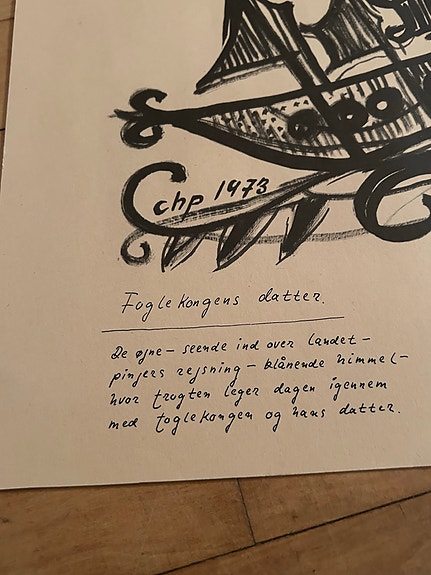 chp 1973
Foglekongens datter.
De øjne – seende ind over landet –
pinjers rejsning – blånende himmel –
hvor leger dagen igennem
med foglekongen og hans datter.